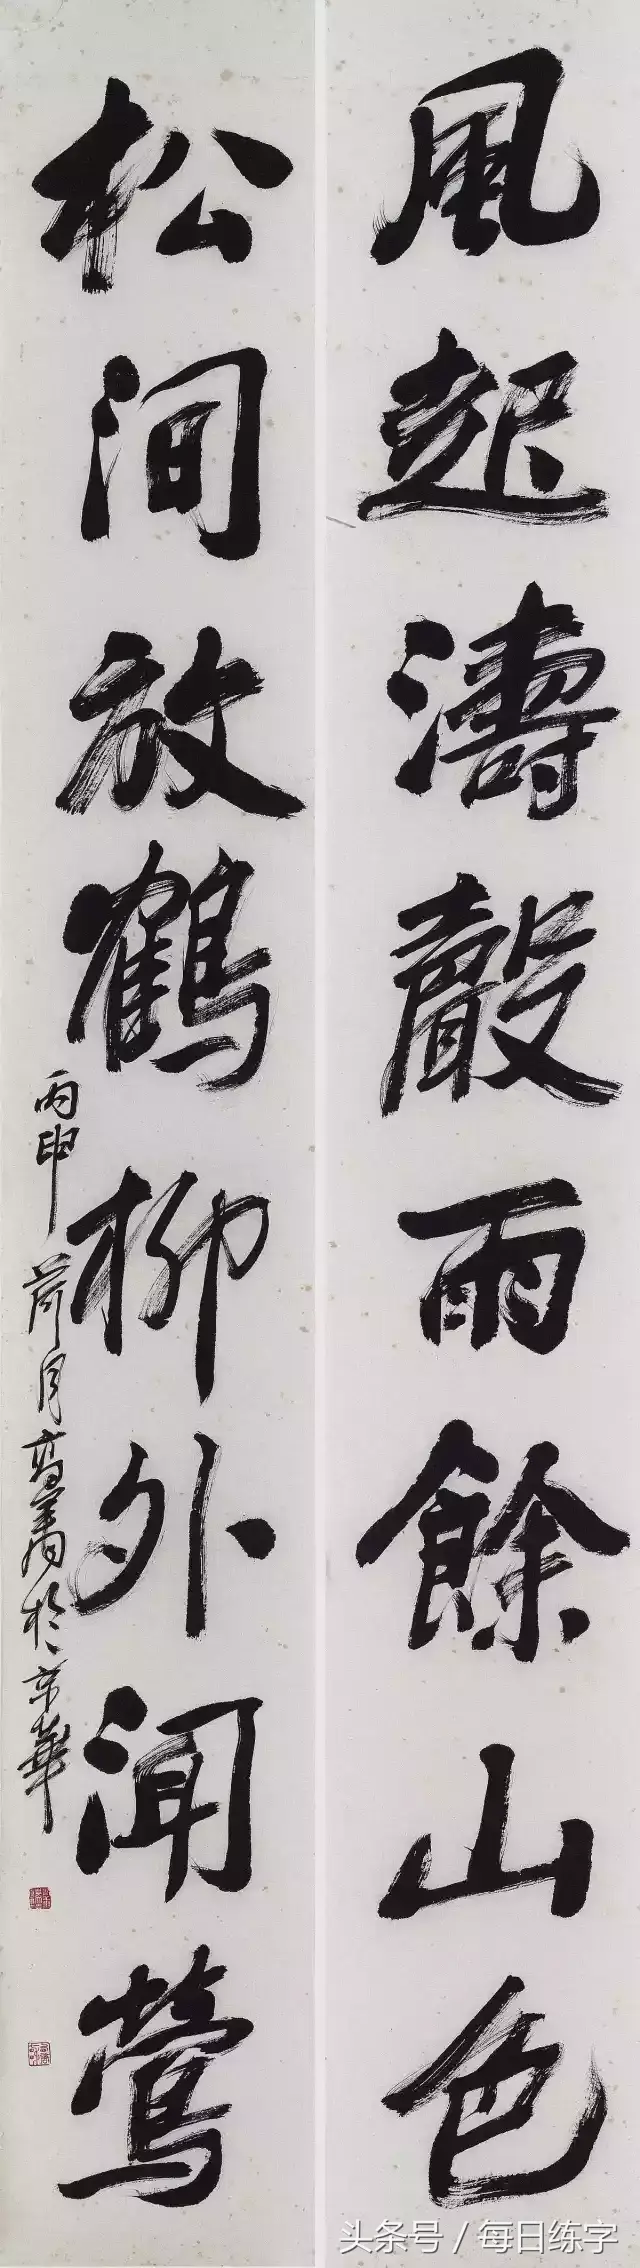 風起濤聲雨餘山色
松間放鶴柳外聞鶯
丙申荷月高軍於京華
头条号 / 每日练字